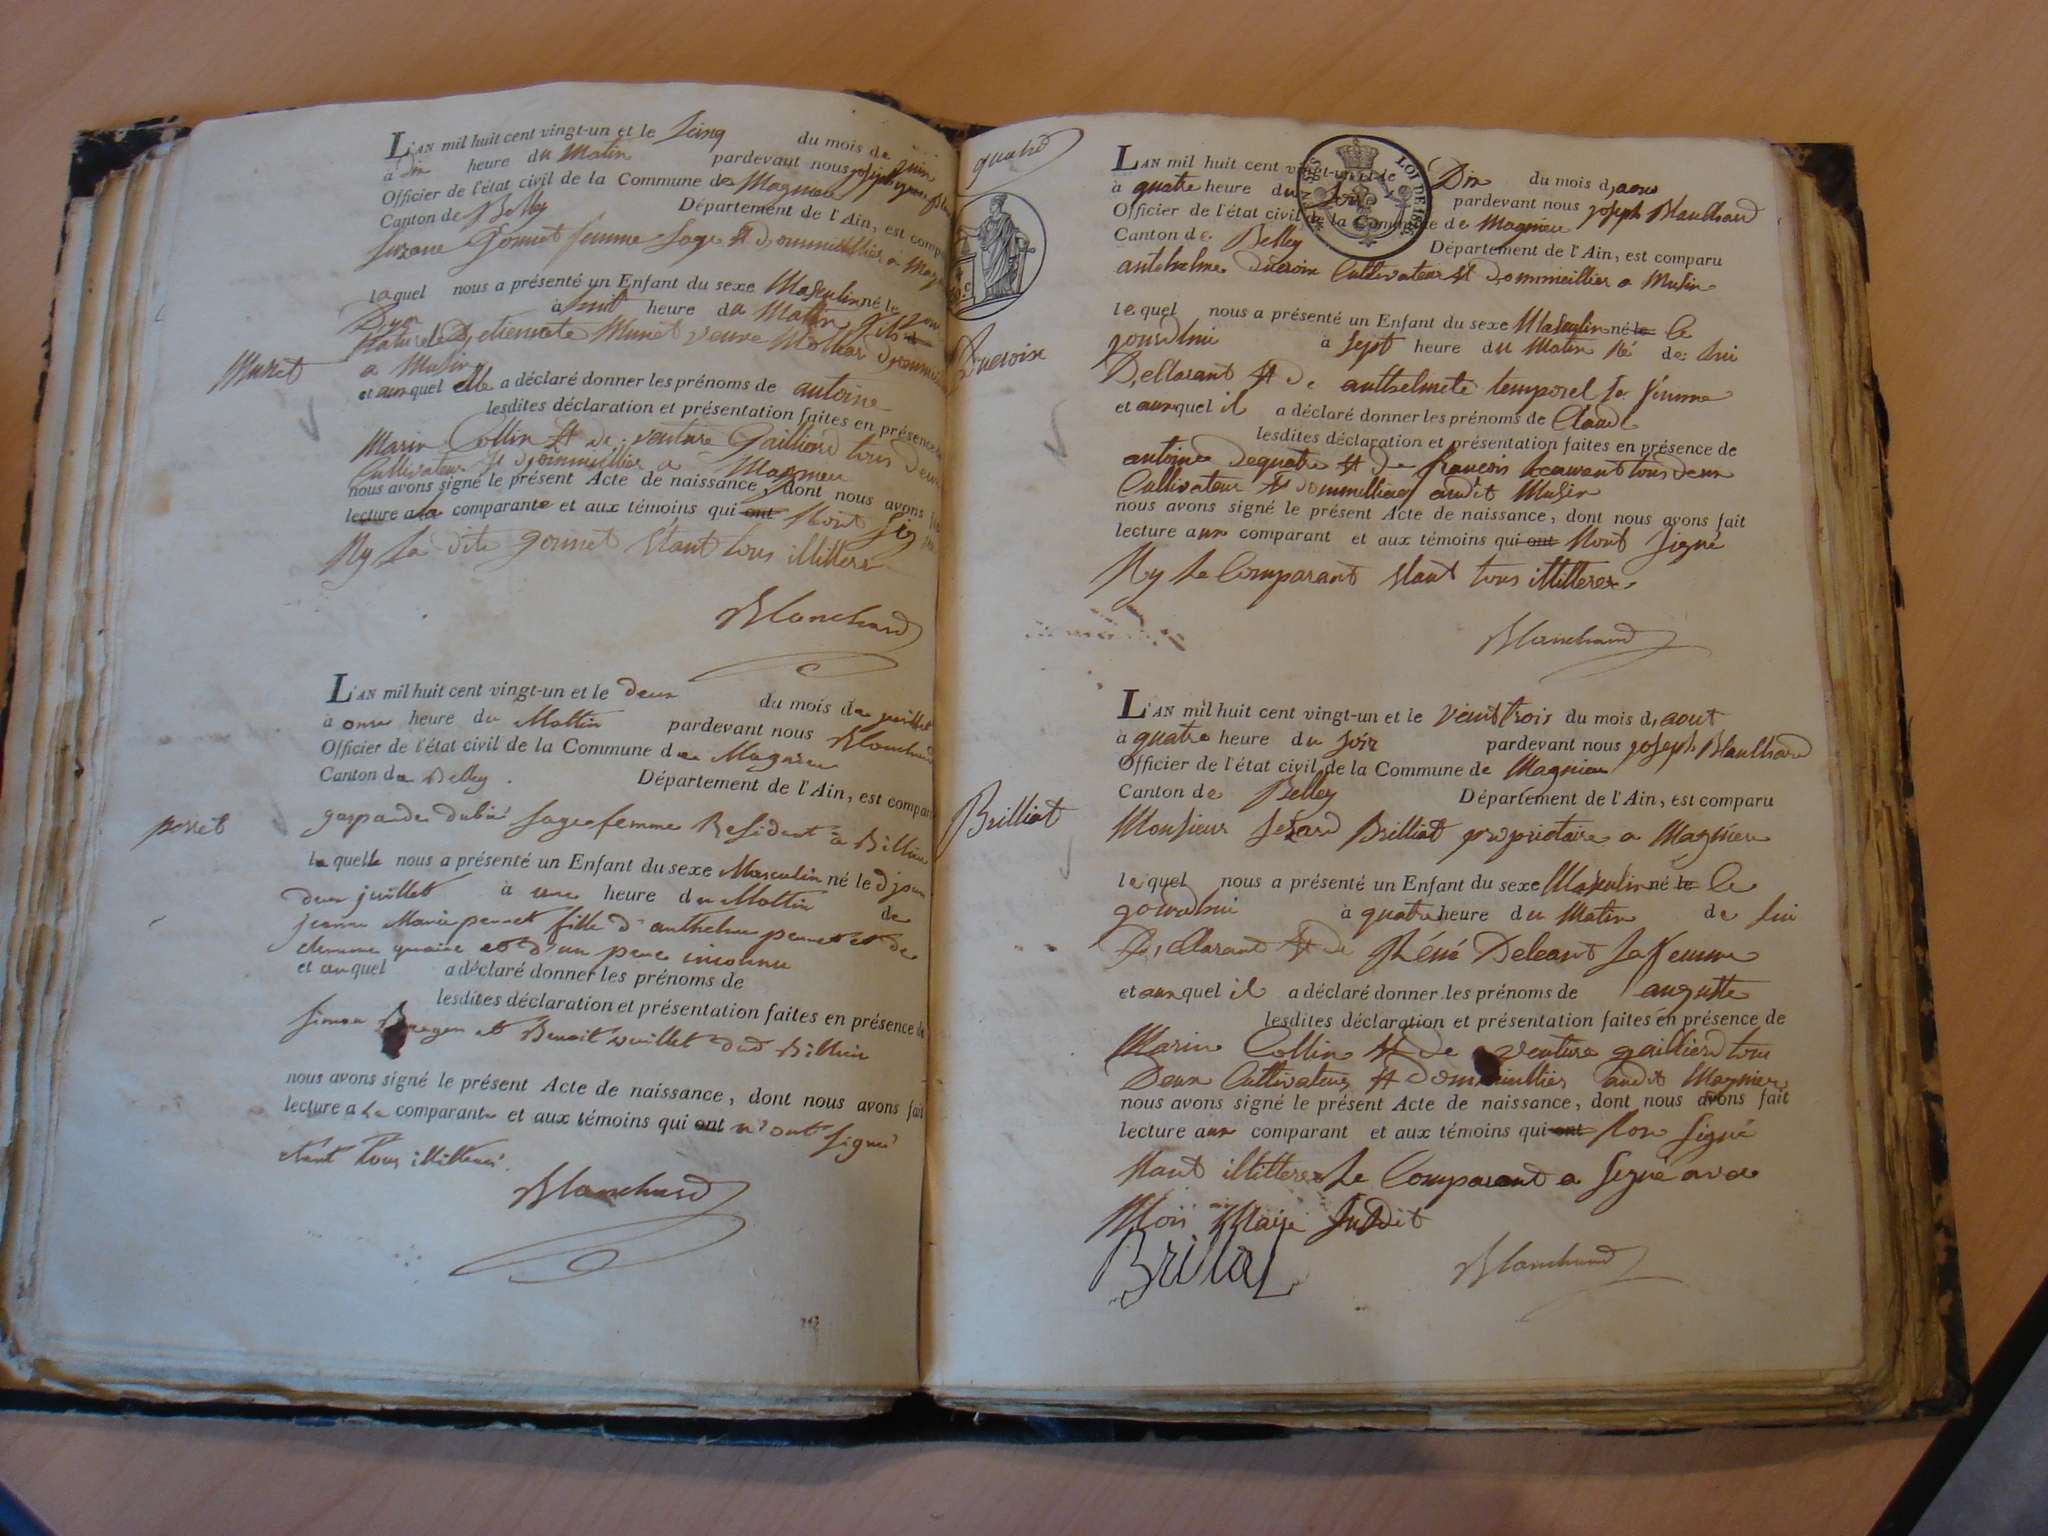 L'AN mil huit cent vingt-un et le Scinq du mois de juin
à dix heure du Matin pardevant nous joseph
Officier de l'état civil de la Commune de Magnieu
Canton de Belley Département de l'Ain, est comp
Suzane Gonnet femme Sage et dommeillier a
laquel nous a présenté un Enfant du sexe Masculin né le
à huit heure du Matin fils
Naturel D, etiennete Muret veuve
a Musin
Muret
et auquel elle a déclaré donner les prénoms de antoine
lesdites déclaration et présentation faites en présence
Marin Collin et de venture Gailliord tous deux
Cultivateur et dommeillier a Magnieu
nous avons signé le présent Acte de naissance, dont nous avons
lecture a la comparante et aux témoins qui ont Nont
Ny La dite gonnet Etant tous illitterer
Blanchard
L'AN mil huit cent vingt-un et le deux du mois de juillet
à onze heure du Mattin pardevant nous Blanchard
Officier de l'état civil de la Commune de Magnieu
Canton de Belley. Département de l'Ain, est compar
sagefemme Residant à Billieu
perret
la quelle nous a présenté un Enfant du sexe Masculin né le
deux juillet à une heure du Mattin de
jeanne Marie perret fille d'anthelme perret et de
et d'un pere inconnu
et auquel a déclaré donner les prénoms de
lesdites déclaration et présentation faites en présence de
simon et Benoit vuillet dud Billieu
nous avons signé le présent Acte de naissance, dont nous avons fait
lecture a la comparante et aux témoins qui ont n'ont signé
etant tous illitterés.
Blanchard
quatre
LOI DE
L'AN mil huit cent vingt-un et le Dix du mois d,aout
à quatre heure du Soir pardevant nous joseph Blanchard
Officier de l'état civil de la Commune de Magnieu
Canton de Belley Département de l'Ain, est comparu
antelme Ducroix Cultivateur et dommeillier a Musin
lequel nous a présenté un Enfant du sexe Masculin né le Ce
jourdhui à Sept heure du Matin Né de lui
Ducroix
Declarant et de anthelmete temporel Sa femme
et auxquel il a déclaré donner les prénoms de Claude
lesdites déclaration et présentation faites en présence de
antoine dequatre et de françois tous deux
Cultivateur et dommeillier audit Musin
nous avons signé le présent Acte de naissance, dont nous avons fait
lecture aux comparant et aux témoins qui ont Nont Signé
Ny Le Comparant Etant tous illitterer
Blanchard
L'AN mil huit cent vingt-un et le veint trois du mois d,aout
à quatre heure du soir pardevant nous joseph Blanchard
Officier de l'état civil de la Commune de Magnieu
Canton de Belley Département de l'Ain, est comparu
Brilliat
Monsieur Sezard Brilliat propriotaire a Magnieu
lequel nous a présenté un Enfant du sexe Masculin né le Ce
jourdhui à quatre heure du Matin de lui
D,clarant et de Réné Deleant Sa femme
et auxquel il a déclaré donner les prénoms de auguste
lesdites déclaration et présentation faites en présence de
Marin Collin et de venture gailliord tous
Deux Cultivateur et dommeillier audit Magnieu
nous avons signé le présent Acte de naissance, dont nous avons fait
lecture aux comparant et aux témoins qui ont Non Signé
Etant illitterer Le Comparant a Signé avec
Moi Maire Susdit
Brillat
Blanchard